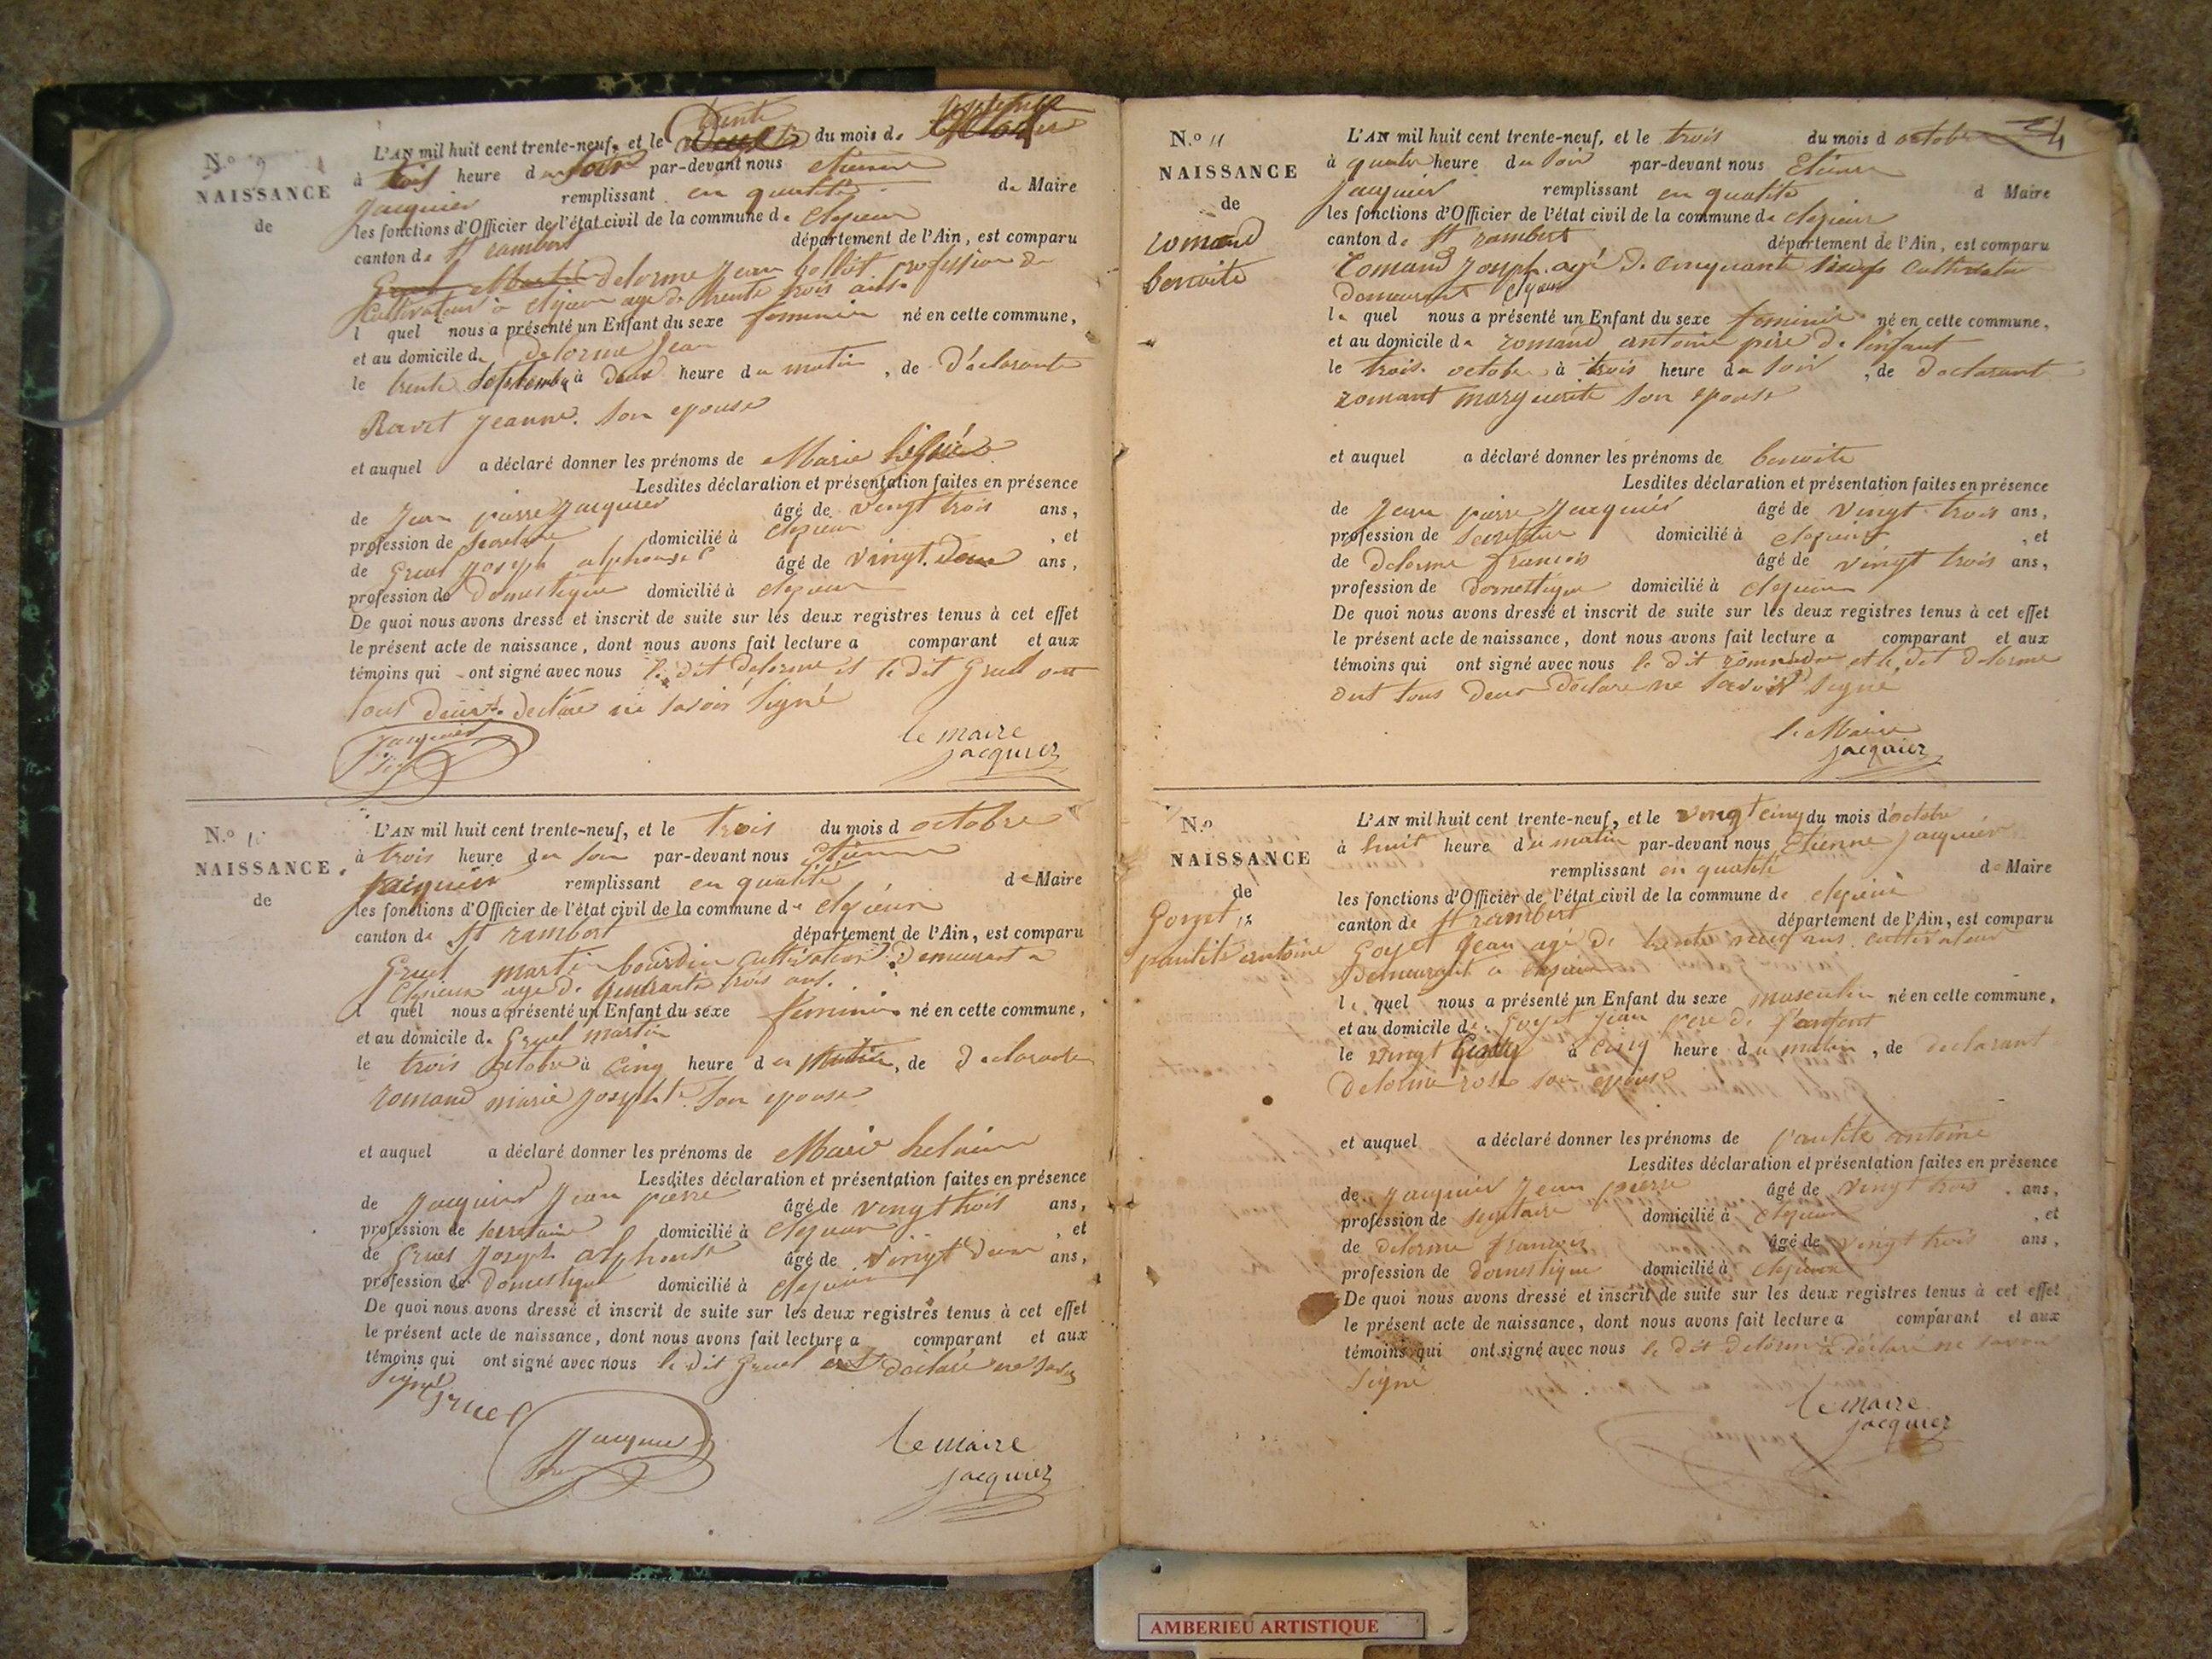 N.º 9
NAISSANCE
de
L'AN mil huit cent trente-neuf, et le trente du mois de septembre
à trois heure du soir par-devant nous etienne
Jacquier remplissant en qualité de Maire
les fonctions d'Officier de l'état civil de la commune de
canton de St rambert département de l'Ain, est comparu
delorme Jean profession de
cultivateur à age de trente trois ans.
l quel nous a présenté un Enfant du sexe feminin né en cette commune,
et au domicile de delorme Jean
le trente septembre à deux heure du matin, de déclarante
Ravet Jeanne. son epouse
et auquel a déclaré donner les prénoms de Marie
Lesdites déclaration et présentation faites en présence
de Jean pierre Jacquier âgé de vingt trois ans,
profession de secretaire domicilié à , et
de Gruel Joseph alphonse âgé de vingt. deux ans,
profession de domestique domicilié à
De quoi nous avons dressé et inscrit de suite sur les deux registres tenus à cet effet
le présent acte de naissance, dont nous avons fait lecture a comparant et aux
témoins qui ont signé avec nous le dit delorme et le dit Gruel ont
tous deux declare ne savoir signé
Jacquier
le maire
jacquier
N.º 10
NAISSANCE
de
L'AN mil huit cent trente-neuf, et le trois du mois d octobre
à trois heure du soir par-devant nous Etienne
Jacquier remplissant en qualité de Maire
les fonctions d'Officier de l'état civil de la commune de
canton de St rambert département de l'Ain, est comparu
Gruel martin bourdin cultivateur demeurant a
age de quarante trois ans.
l quel nous a présenté un Enfant du sexe feminin né en cette commune,
et au domicile de Gruel martin
le trois octobre à cinq heure du matin, de declarante
romand marie josephte son epouse
et auquel a déclaré donner les prénoms de Marie
Lesdites déclaration et présentation faites en présence
de Jacquier Jean pierre âgé de vingt trois ans,
profession de secretaire domicilié à , et
de Gruel Joseph alphonse âgé de vingt deux ans,
profession de domestique domicilié à
De quoi nous avons dressé et inscrit de suite sur les deux registres tenus à cet effet
le présent acte de naissance, dont nous avons fait lecture a comparant et aux
témoins qui ont signé avec nous le dit Gruel declaré ne savoir
signé
gruel
Jacquier
le maire
jacquier
N.º 11
NAISSANCE
de
romand
benoite
L'AN mil huit cent trente-neuf, et le trois du mois d octobre
à quatre heure du soir par-devant nous Etienne
Jacquier remplissant en qualité d Maire
les fonctions d'Officier de l'état civil de la commune de
canton de St rambert département de l'Ain, est comparu
romand Joseph. agé de cinquante cultivateur
demeurant
le quel nous a présenté un Enfant du sexe feminin né en cette commune,
et au domicile de romand antoine père de l'enfant
le trois octobre à trois heure du soir, de declarant
romant marguerite son epouse
et auquel a déclaré donner les prénoms de benoite
Lesdites déclaration et présentation faites en présence
de Jean pierre Jacquier âgé de vingt trois ans,
profession de secretaire domicilié à , et
de delorme francois âgé de vingt trois ans,
profession de domestique domicilié à
De quoi nous avons dressé et inscrit de suite sur les deux registres tenus à cet effet
le présent acte de naissance, dont nous avons fait lecture a comparant et aux
témoins qui ont signé avec nous le dit et le dit delorme
ont tous deux declare ne savoir signé
le Maire
jacquier
N.º
NAISSANCE
de
Goyet 12
antoine
L'AN mil huit cent trente-neuf, et le vingt cinq du mois d'octobre
à huit heure du matin par-devant nous Etienne Jacquier
remplissant en qualité de Maire
les fonctions d'Officier de l'état civil de la commune de
canton de St rambert département de l'Ain, est comparu
Goyet Jean agé de trente neuf ans cultivateur
demeurant à
le quel nous a présenté un Enfant du sexe masculin né en cette commune,
et au domicile de Goyet Jean pere de l'enfant
le vingt cinq à cinq heure du matin, de declarant
delorme rose son epouse
et auquel a déclaré donner les prénoms de antoine
Lesdites déclaration et présentation faites en présence
de Jacquier Jean pierre âgé de vingt trois ans,
profession de secretaire domicilié à , et
de delorme francois âgé de vingt trois ans,
profession de domestique domicilié à
De quoi nous avons dressé et inscrit de suite sur les deux registres tenus à cet effet
le présent acte de naissance, dont nous avons fait lecture a comparant et aux
témoins qui ont signé avec nous le dit delorme à déclaré ne savoir
signé
le maire
jacquier
AMBERIEU ARTISTIQUE